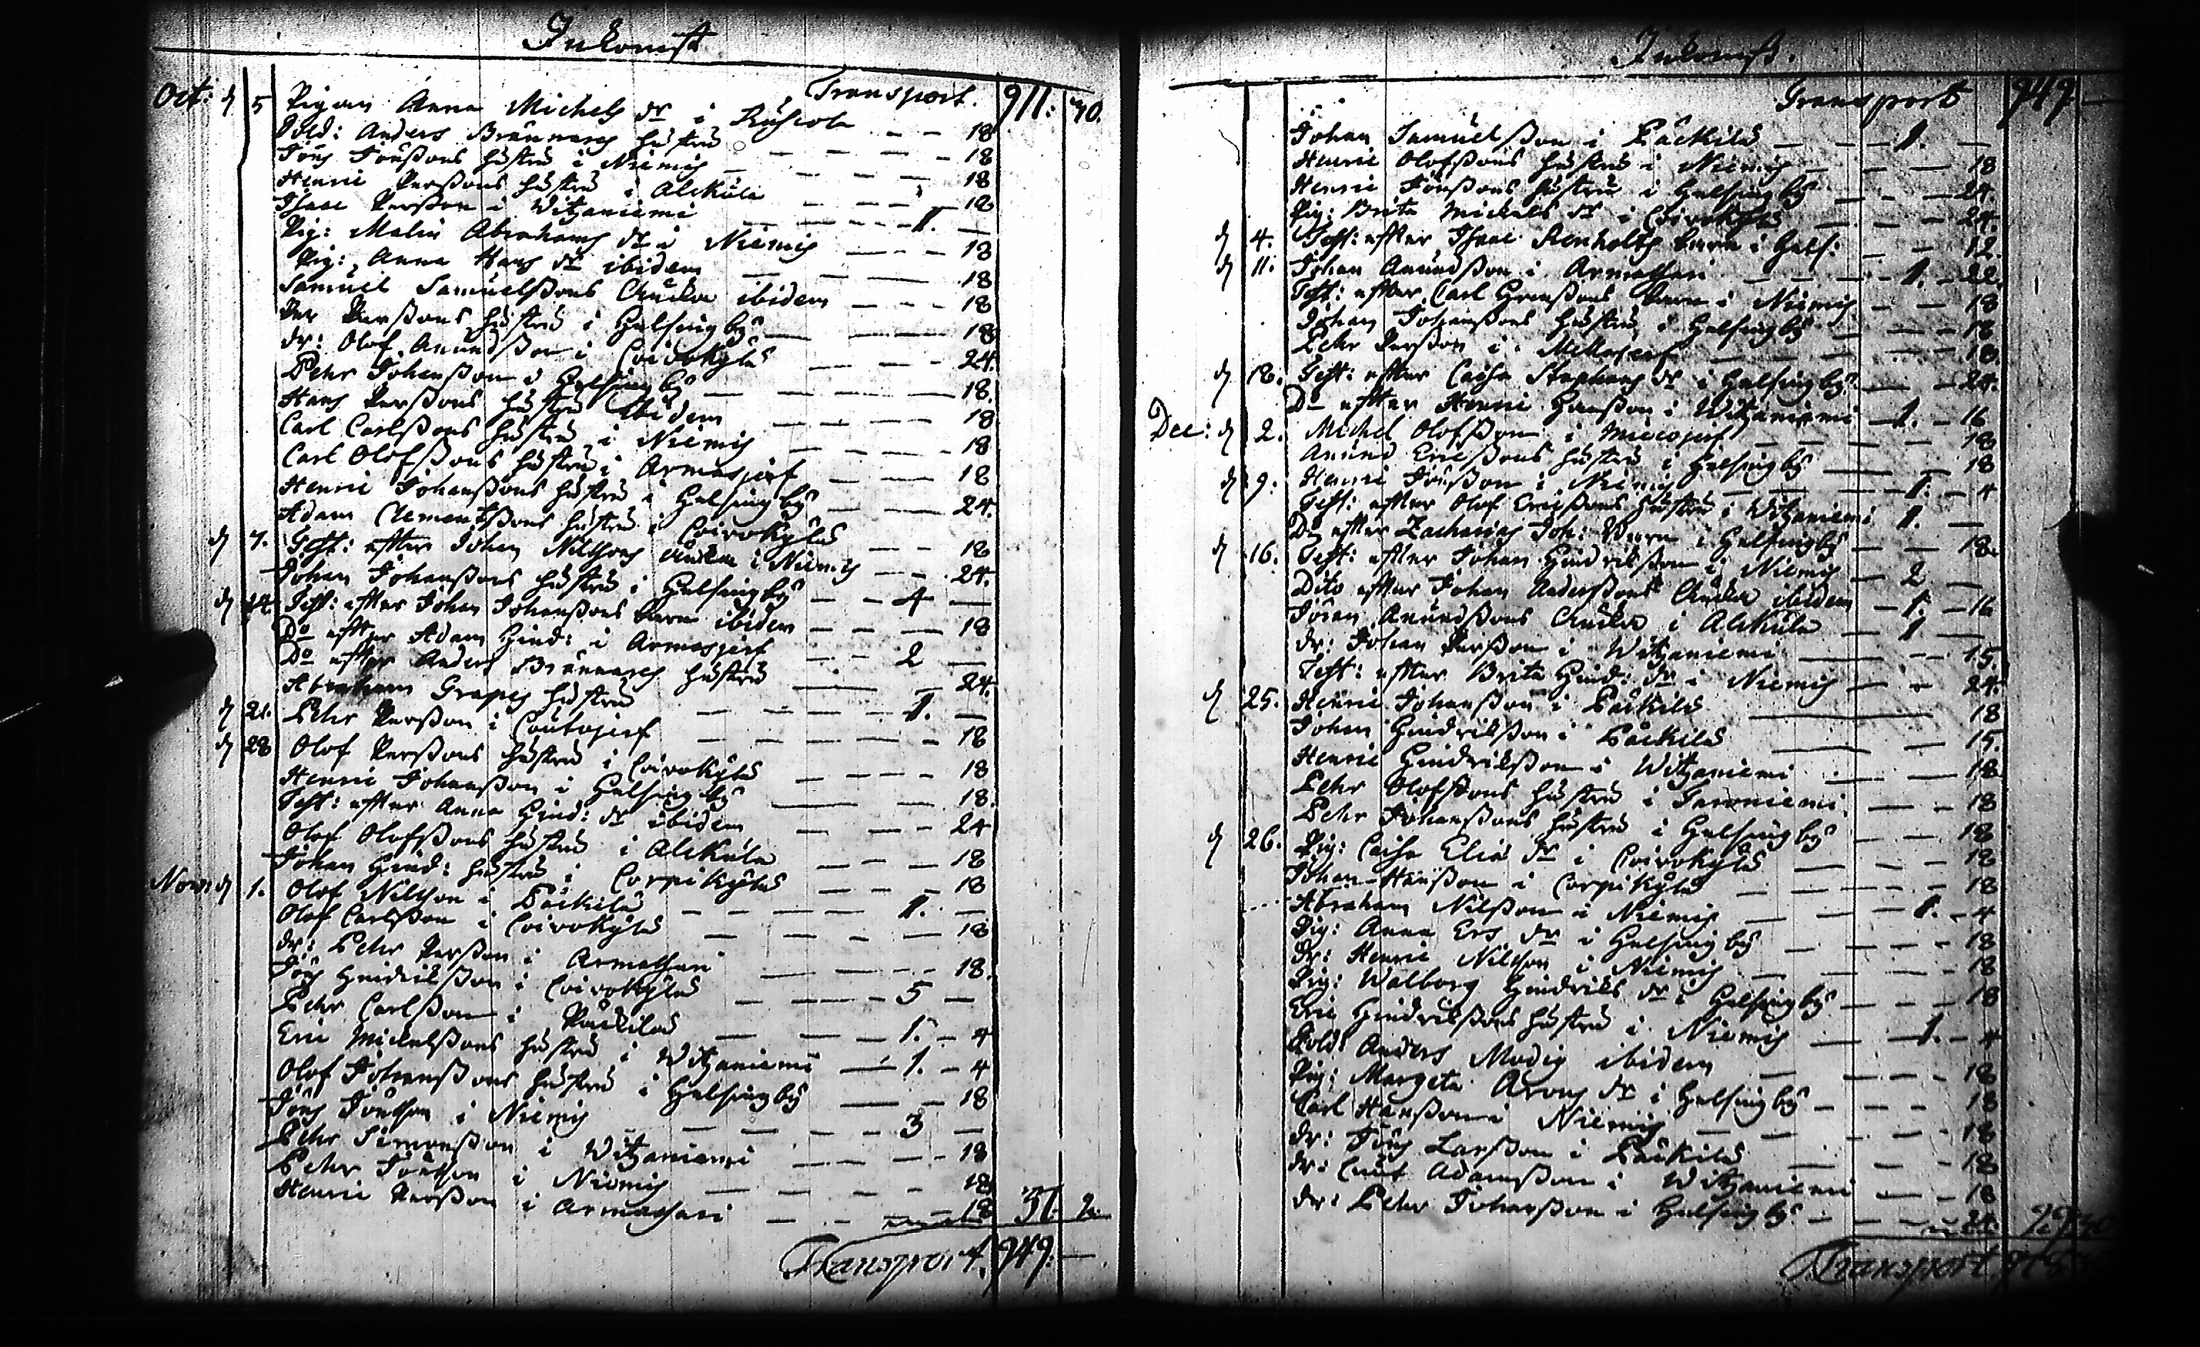 Inkomst
Transport. 911: 30.
Oct: d 5 Pigan Anna Michels dr i Ruskola - - 18
Sold: Anders Brännares hustru - - - 18
Jöns Jönßons hustru i Niemis - - - 18
Henric Perßons hustru i Alckula - - - 18
Isaac Perßon i Witzaniemi - - - 1. -
Pig: Malin Abrahams dr i Niemis - - 18
Pig: Anna Hans dr ibidem - - - 18
Samuel Samuelßons Encka ibidem - - - 18
Per Perßons hustru i Helsingby - - 18
dr: Olof Anundßon i Coivokylä - - - 24.
Pehr Johanßon i Helsingby - - - 18.
Hans Perßons hustru ibidem - - - 18
Carl Carlßons hustru i Niemis - - - 18
Carl Olofßons hustru i Armasjerf - - - 18
Henric Johanßons hustru i Helsingby - - 24.
Adam Clementßons hustru i Coivokylä - - - 18
d 7. Test: efter Johan Nilssons Encka i Niemis - - 24.
Johan Johanßons hustru i Helsingby - - 4 -
d 14. Test: efter Johan Johanßons barn ibidem - - - 18
Do efter Adam Hind: i Armasjerf - - 2 -
Do efter Anders Brännares hustru - - - 24.
Abraham Grapes hustru - - - 1. -
d 21. Pehr Perßon i Coutojerf - - - 18
d 28 Olof Perßons hustru i Coivokylä - - - 18
Henric Johanßon i Helsingby - - - 18.
Test: efter Anna Hind: dr ibidem - - - 24
Olof Olofßons hustru i Alckula - - - 18
Johan Hind: hustru i Corpikylä - - - 18
Nov: d 1. Olof Nilsson i Päckilä - - - 1. -
Olof Carlßon i Coivokylä - - - 18
dr: Pehr Perßon i Armassari - - - 18.
Jöns Hindrikßon i Coivokylä - - - 5 -
Pehr Carlßon i Päckilä - - - 1. - 4
Eric Mickelßons hustru i Witzaniemi - 1. - 4
Olof Johanßons hustru i Helsingby - - 18
Jöns Jönsson i Niemis - - - 3 -
Pehr Simonßon i Witzaniemi - - - 18
Pehr Jönsson i Niemis - - - 18
Henric Perßon i Armassari - - - 18 37. 2.
Transport. 949: -
Inkomst.
Transport 949. -
Johan Samuelßon i Päckilä - - 1. -
Henric Olofßons hustru i Niemis - - - 18
Henric Jönßons hustru i Helsingby - - - 24.
Pig: Brita Mickels dr i Coivokylä - - - 24.
d 4. Test: efter Isaac Renholts barn i Hels: - - 12.
d 11. Johan Anundßon i Armassari - - 1. - 22.
Test: efter Carl Hansßons barn i Niemis - - 18
Johan Johanßons hustru i Helsingby - - - 18
Pehr Perßon i Mellajerf - - - 18.
d 18. Test: efter Caisa Stephans dr i Helsingby - - 24.
Do efter Henric Hansßon i Witzaniemi - 1. - 16
Dec: d 2. Michel Olofßon i Miecojerf - - - 18
Anund Ericßons hustru i Helsingby - - - 18
d 9. Henric Jönßon i Niemis - - 1. - 4
Test: efter Olof Ericßons hustru i Witzaniemi 1. -
Do efter Zacharias Joh: Barn i Helsingby - - 18.
d 16. Test: efter Johan Hindrikßon i Niemis - 2 -
Dito efter Johan Anderßons Encka ibidem - 1. - 16
Jöran Anundßons Encka i Alckula - 1 -
dr: Johan Perßon i Witzaniemi - - - 15.
Test: efter Brita Hind: dr i Niemis - - 24.
d 25. Henric Johanßon i Päckilä - - - 18
Johan Hindrikßon i Päckilä - - - 15.
Henric Hindrikßon i Witzaniemi - - - 18
Pehr Olofßons hustru i Jaroniemi - - - 18
Pehr Johanßons hustru i Helsingby - - - 18
d 26. Pig: Caisa Eliæ dr i Coivokylä - - - 18
Johan Hansßon i Corpikylä - - - 18
Abraham Nilsßon i Niemis - - 1. - 4
Pig: Anna Ers dr i Helsingby - - - 18
dr: Henric Nilsson i Niemis - - - 18
Pig: Walborg Hindriks dr i Helsingby - - - 18
Eric Hindrikßons hustru i Niemis - 1. - 4
Sold: Anders Modig ibidem - - - 18
Pig: Margeta Arons dr i Helsingby - - - 18
Carl Hansßon i Niemis - - - 18
dr: Jöns Larsßon i Päckilä - - - 18
dr: Cnut Adamßon i Witzaniemi - - - 18
dr: Pehr Johanßon i Helsingby - - - 24. 29. 30
Transport 978